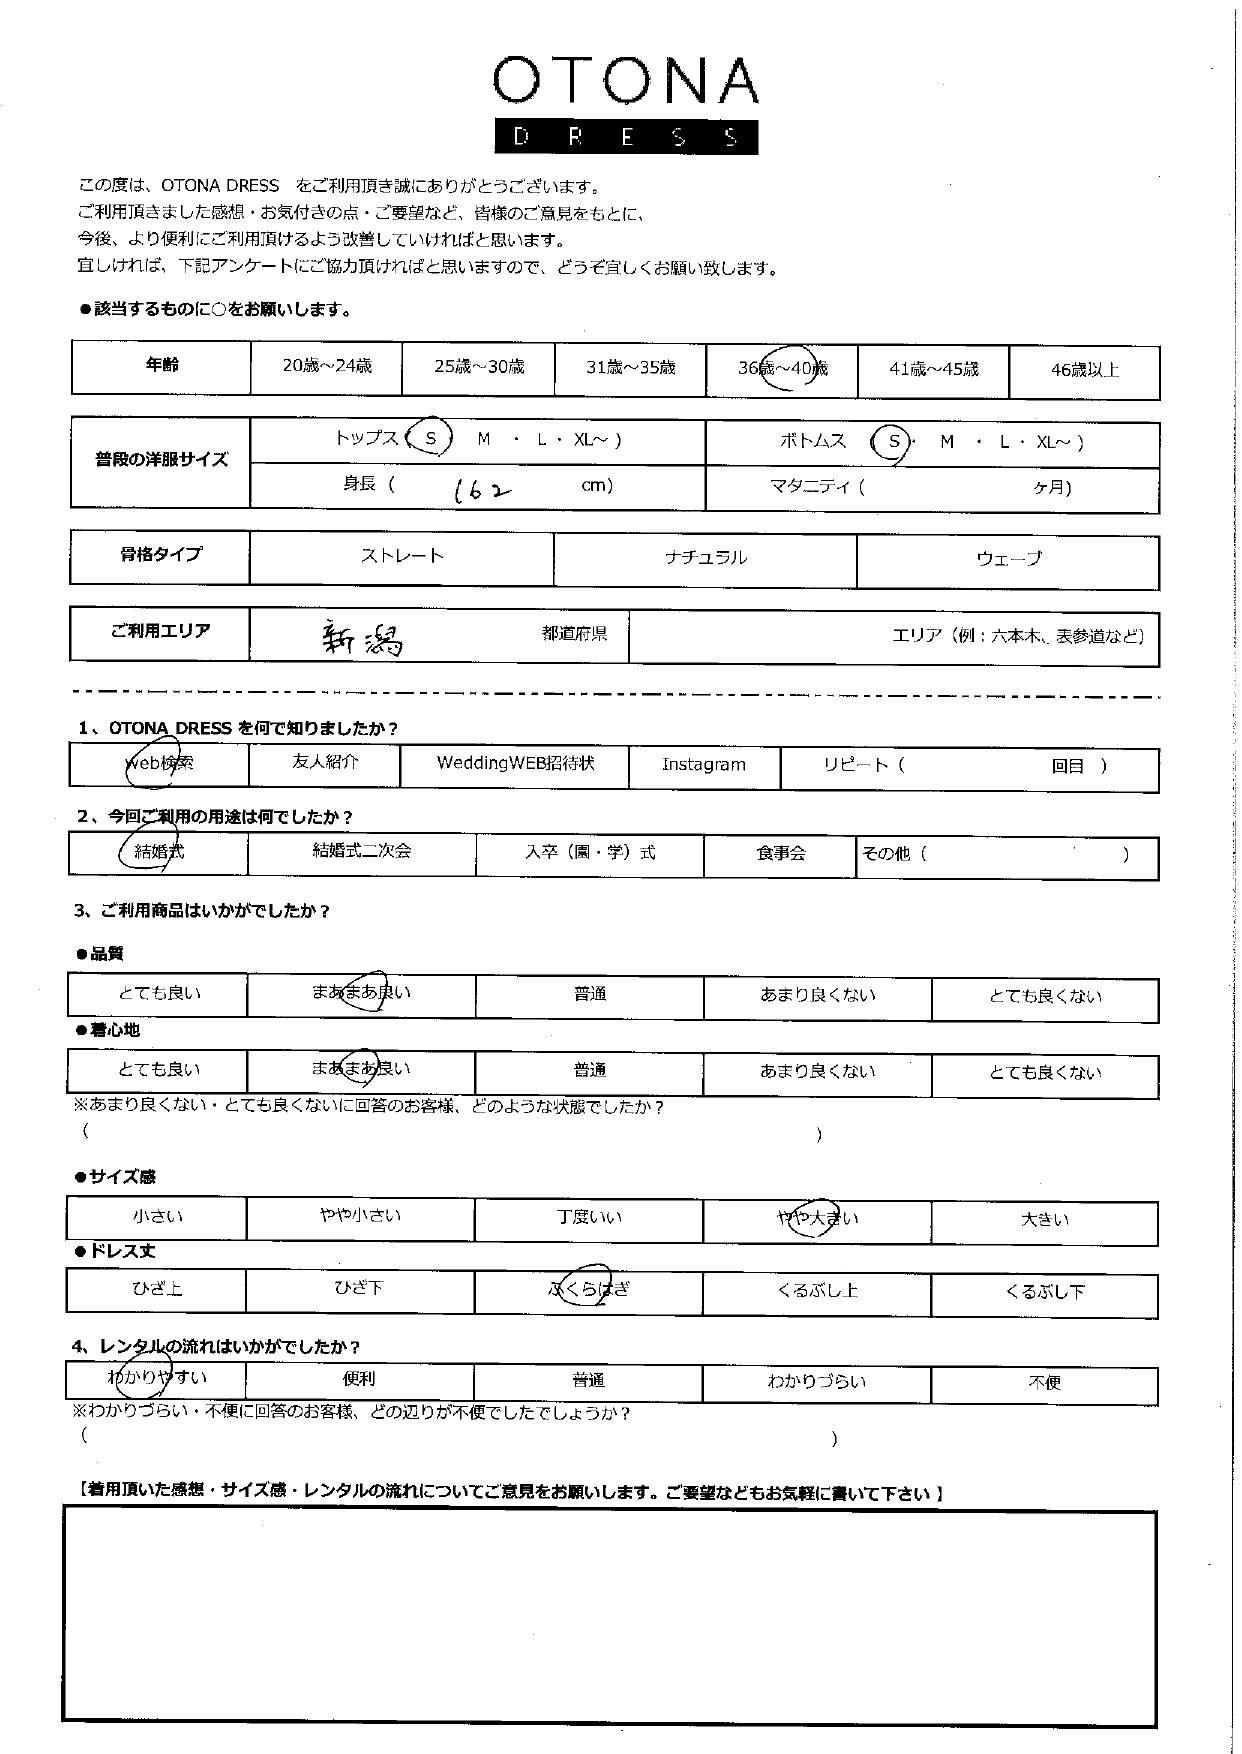 OTONA
DRESS
この度は、OTONA DRESS　をご利用頂き誠にありがとうございます。
ご利用頂きました感想・お気付きの点・ご要望など、皆様のご意見をもとに、
今後、より便利にご利用頂けるよう改善していければと思います。
宜しければ、下記アンケートにご協力頂ければと思いますので、どうぞ宜しくお願い致します。
●該当するものに○をお願いします。
年齢 20歳～24歳 25歳～30歳 31歳～35歳 36歳～40歳 41歳～45歳 46歳以上
普段の洋服サイズ トップス ( S ) M ・ L ・ XL～ ) ボトムス ( S ・ M ・ L ・ XL～ )
身長 ( 162 cm) マタニティ ( ケ月)
骨格タイプ ストレート ナチュラル ウェーブ
ご利用エリア 新潟 都道府県 エリア（例：六本木、表参道など）
1、OTONA DRESS を何で知りましたか？
Web検索 友人紹介 WeddingWEB招待状 Instagram リピート ( 回目 )
2、今回ご利用の用途は何でしたか？
結婚式 結婚式二次会 入卒（園・学）式 食事会 その他 ( )
3、ご利用商品はいかがでしたか？
●品質
とても良い まあまあ良い 普通 あまり良くない とても良くない
●着心地
とても良い まあまあ良い 普通 あまり良くない とても良くない
※あまり良くない・とても良くないに回答のお客様、どのような状態でしたか？
( )
●サイズ感
小さい やや小さい 丁度いい やや大きい 大きい
●ドレス丈
ひざ上 ひざ下 ふくらはぎ くるぶし上 くるぶし下
4、レンタルの流れはいかがでしたか？
わかりやすい 便利 普通 わかりづらい 不便
※わかりづらい・不便に回答のお客様、どの辺りが不便でしたでしょうか？
( )
【着用頂いた感想・サイズ感・レンタルの流れについてご意見をお願いします。ご要望などもお気軽に書いて下さい】